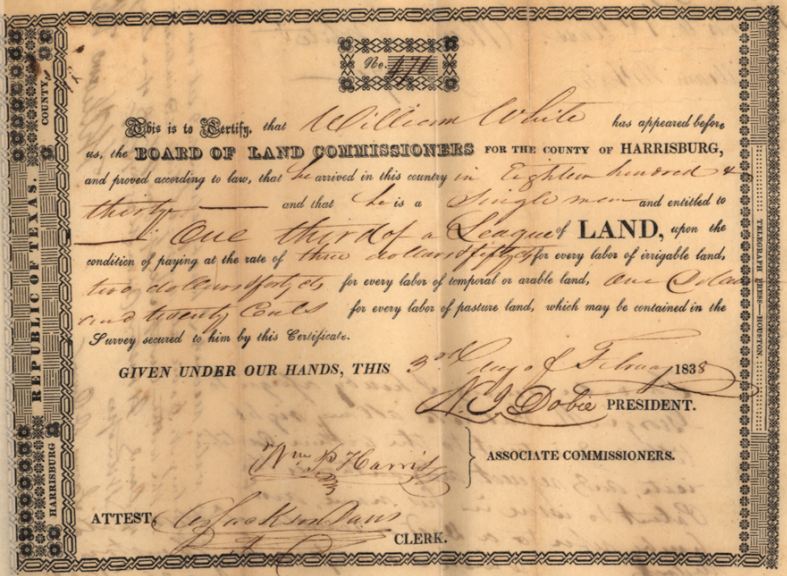 No. 
This is to Certify, that William White has appeared before
us, the BOARD OF LAND COMMISSIONERS FOR THE COUNTY OF HARRISBURG,
and proved according to law, that he arrived in this country in Eighteen hundred &
thirty and that he is a Single man and entitled to
One third of a League of LAND, upon the
condition of paying at the rate of three dollars fifty cts for every labor of irrigable land,
two dollars forty cts for every labor of temporal or arable land, one Dollar
and twenty Cents for every labor of pasture land, which may be contained in the
Survey secured to him by this Certificate.
GIVEN UNDER OUR HANDS, THIS 3rd day of 1838
Dobie PRESIDENT.
Wm P Harris
ASSOCIATE COMMISSIONERS.
ATTEST,
CLERK.
HARRISBURG REPUBLIC OF TEXAS. COUNTY,
TELEGRAPH PRESS—HOUSTON.